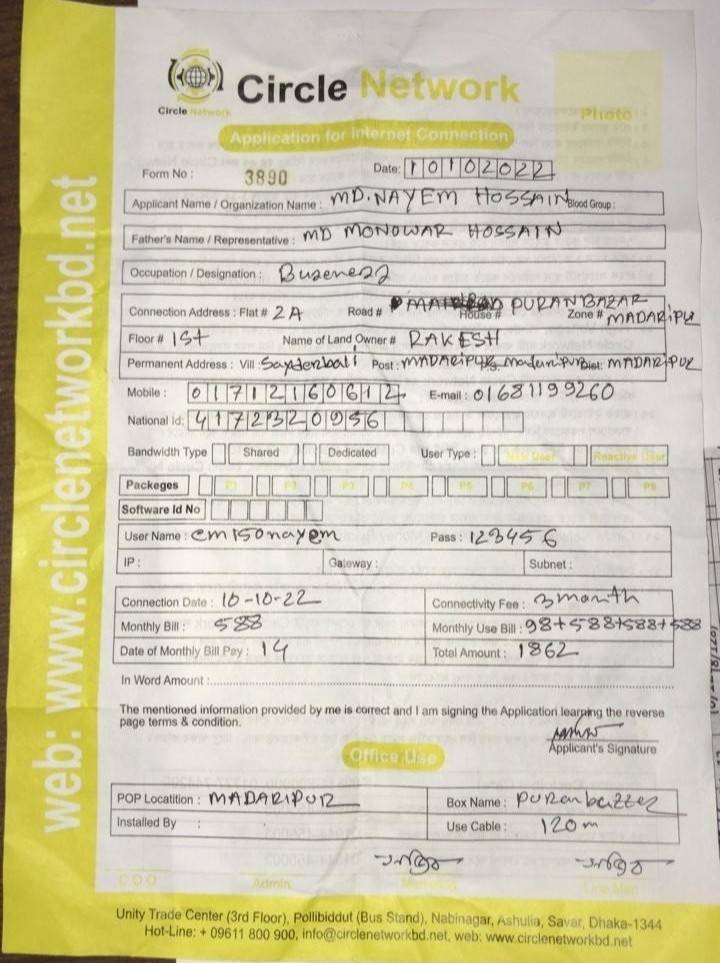 Circle Network
Circle Network
Photo
Application for Internet Connection
Form No : 3890 Date: 10102022
Applicant Name / Organization Name : MD. NAYEM HOSSAIN Blood Group :
Father's Name / Representative : MD MONOWAR HOSSAIN
Occupation / Designation : Buseness
Connection Address : Flat # 2A Road # PURANBAZAR House # Zone # MADARIPUR
Floor # 1st Name of Land Owner # RAKESH
Permanent Address : Vill : Post : MADARIPUR Dist: MADARIPUR
Mobile : 01712160612 E-mail : 01681199260
National Id: 4172320956
Bandwidth Type Shared Dedicated User Type : New User Reactive User
Packeges P1 P2 P3 P4 P5 P6 P7 P8
Software Id No
User Name : emisonayem Pass : 123456
IP : Gateway : Subnet :
Connection Date : 10-10-22 Connectivity Fee : 3 month
Monthly Bill : 588 Monthly Use Bill : 98+588+588+588
Date of Monthly Bill Pay : 14 Total Amount : 1862
In Word Amount :
The mentioned information provided by me is correct and I am signing the Application learning the reverse
page terms & condition.
Applicant's Signature
Office Use
POP Locatition : MADARIPUR Box Name : Puranbazzer
Installed By : Use Cable : 120m
C O O Admin Marketing Line Man
Unity Trade Center (3rd Floor), Pollibiddut (Bus Stand), Nabinagar, Ashulia, Savar, Dhaka-1344
Hot-Line: + 09611 800 900, info@circlenetworkbd.net, web: www.circlenetworkbd.net
web: www.circlenetworkbd.net